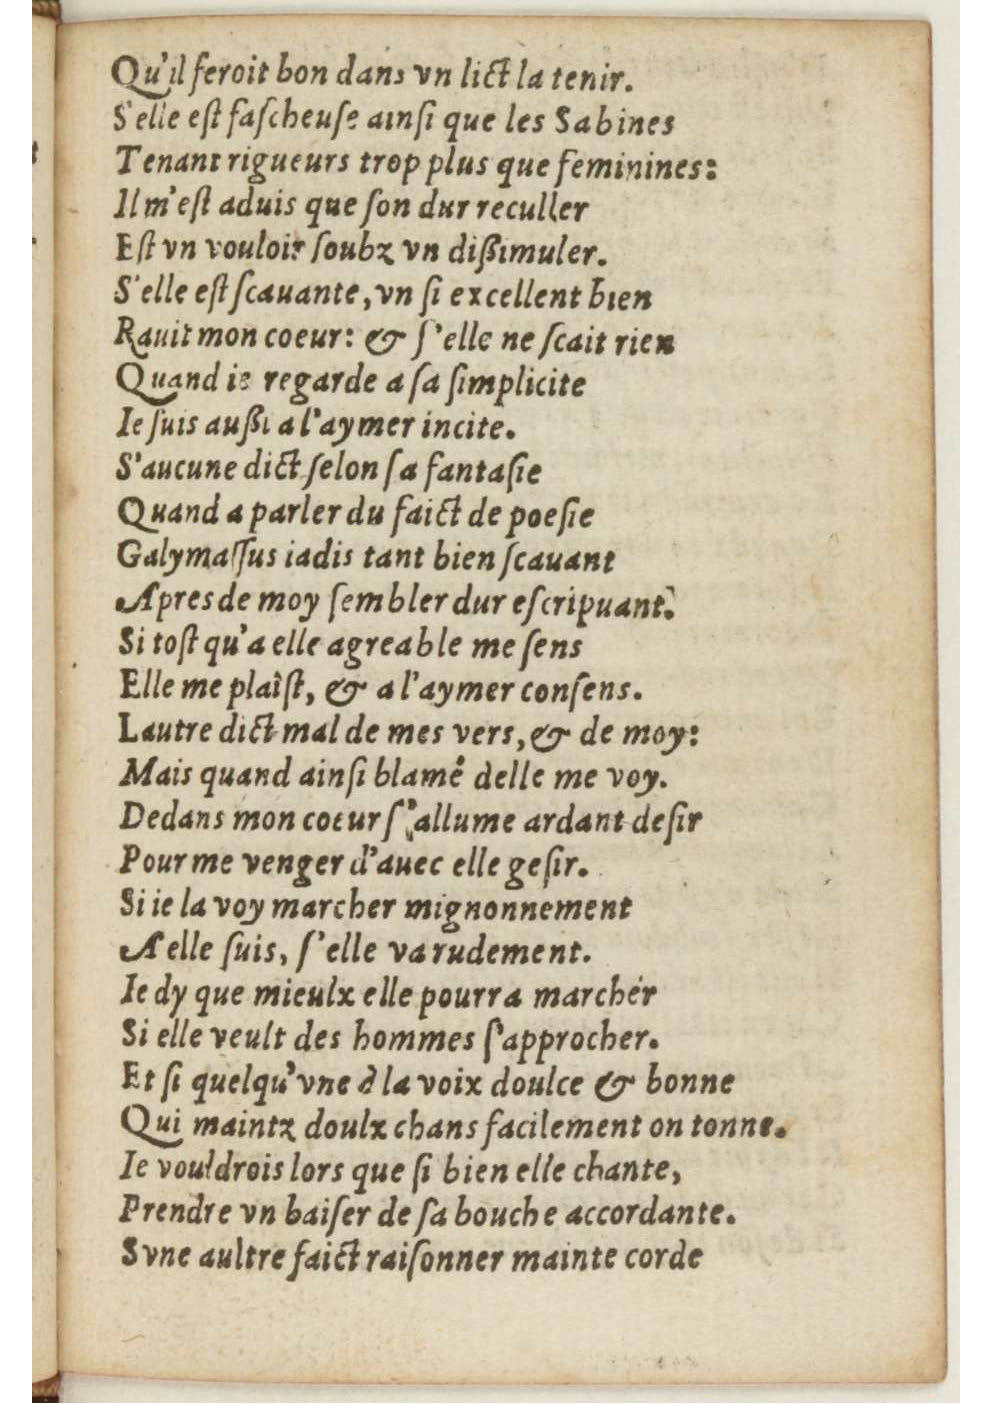 Qu'il feroit bon dans vn lict la tenir.
S'elle eſt faſcheuſe ainſi que les Sabines
Tenant rigueurs trop plus que feminines:
Il m'eſt aduis que ſon dur reculler
Eſt vn vouloir ſoubz vn diſsimuler.
S'elle eſt ſcauante, vn ſi excellent bien
Rauit mon coeur: & ſ'elle ne ſcait rien
Quand ie regarde a ſa ſimplicite
Ie ſuis auſsi a l'aymer incite.
S'aucune dict ſelon ſa fantaſie
Quand a parler du faict de poeſie
Galymaſſus iadis tant bien ſcauant
Apres de moy ſembler dur eſcripuant.
Si toſt qu'a elle agreable me ſens
Elle me plaiſt, & a l'aymer conſens.
Lautre dict mal de mes vers, & de moy:
Mais quand ainſi blamé delle me voy.
Dedans mon coeur ſ'allume ardant deſir
Pour me venger d'auec elle geſir.
Si ie la voy marcher mignonnement
A elle ſuis, ſ'elle va rudement.
Ie dy que mieulx elle pourra marcher
Si elle veult des hommes ſ'approcher.
Et ſi quelqu'vne à la voix doulce & bonne
Qui maintz doulx chans facilement on tonne.
Ie vouldrois lors que ſi bien elle chante,
Prendre vn baiſer de ſa bouche accordante.
Svne aultre faict raiſonner mainte corde